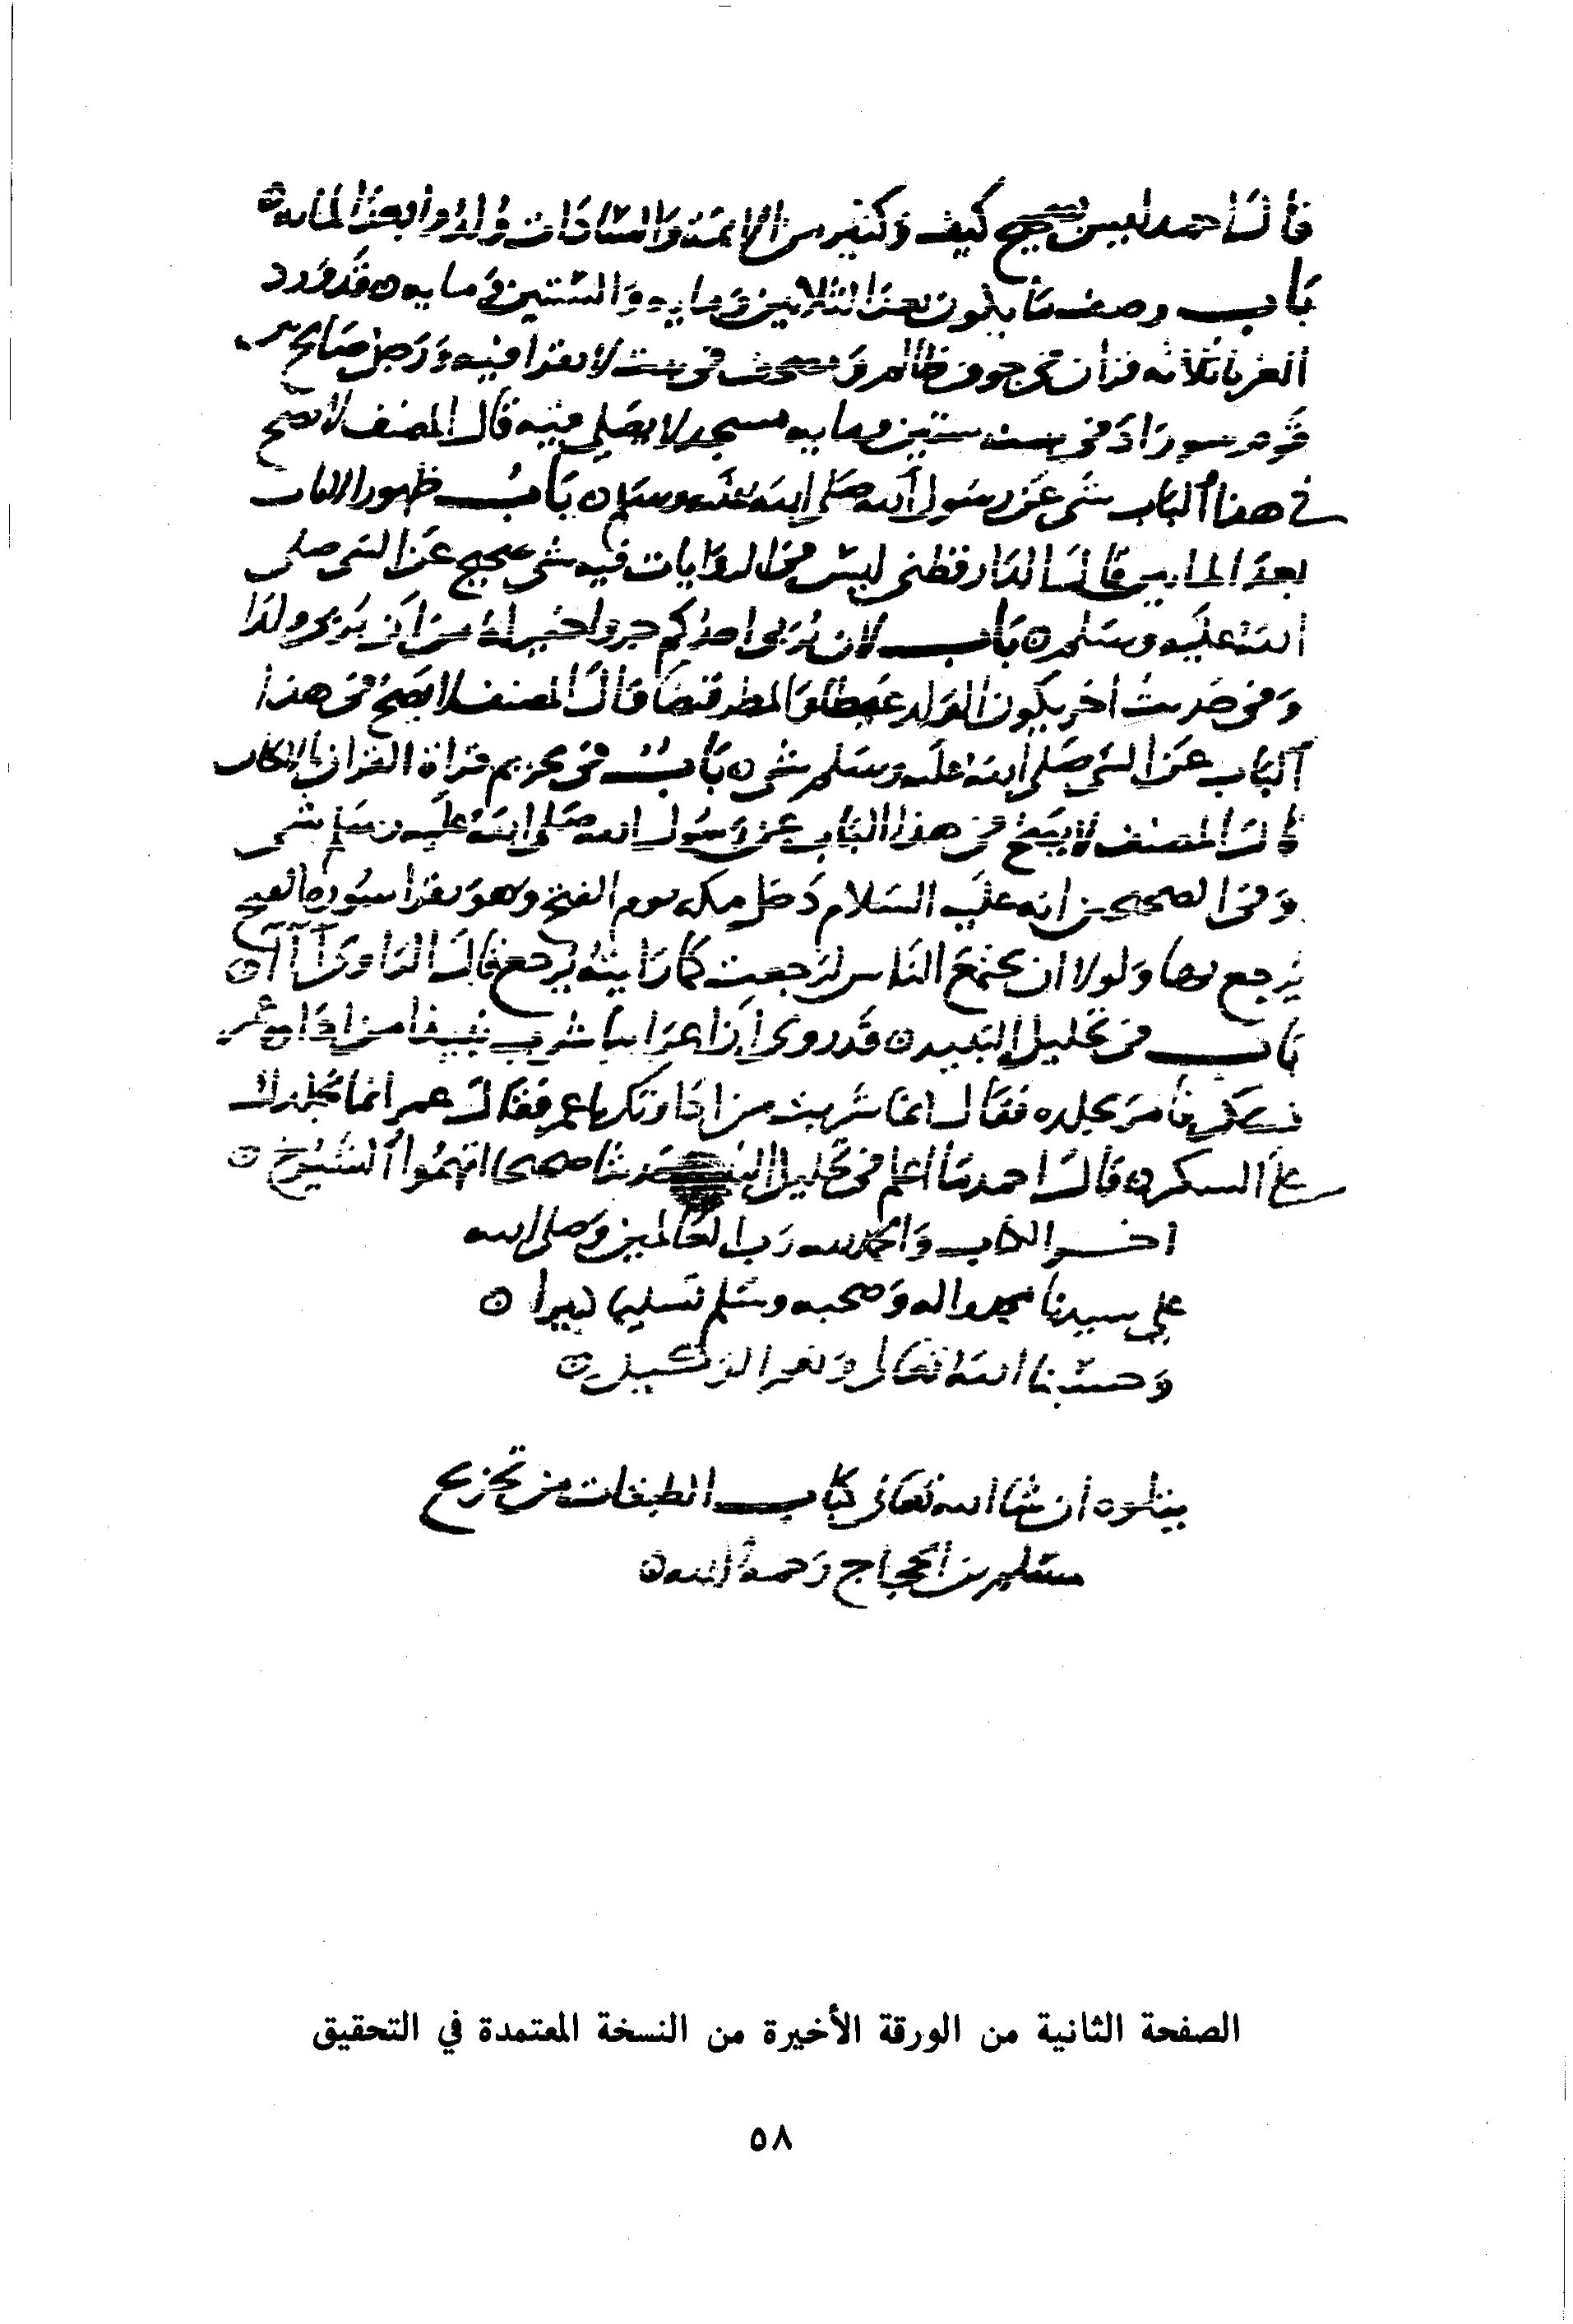 قال احمد ليس بصحيح كيف وكثير من الايمة والسادات ولدوا بعد المايه
باب وصف ما يكون بعد الثلاثين ومايه والستين ومايه قد ورد
الغربا ثلاثه قران في جوف ظالم ومصحف في بيت لا يقرا فيه ورجل صالح بين
قوم سو زاد في سنه ستين ومايه مسجد لا يصلى فيه قال المصنف لا يصح
في هذا الباب شى عن رسول الله صلى الله عليه وسلم باب ظهور الايات
بعد المايتين قال الدارقطني ليس في الروايات فيه شى صحيح عن النبي صلى
الله عليه وسلم باب لان يربى احدكم جروا خير له من ان يربى ولدا
وفي حديث اخر يكون الولد غيظا والمطر قيضا قال المصنف لا يصح في هذا
الباب عن النبي صلى الله عليه وسلم شى باب في تحريم قراة القران بالالحان
قال المصنف لا يصح في هذا الباب عن رسول الله صلى الله عليه وسلم شى
وفي الصحيحين انه عليه السلام دخل مكه يوم الفتح وهو يقرا سورة الفتح
يرجع بها ولولا ان يجتمع الناس لرجعت كما رايته يرجع قال الراوى آ آ آ
باب في تحليل النبيذ قد روى ان اعرابيا شرب نبيذا من اداوه عمر
فسكر فامر بجلده فقال انما شربت من اداوتك يا عمر فقال عمر انما نجلدك
على السكر قال احمد ما اعلم في تحليل النبيذ حديثا صحيحا اتهموا الشيوخ
اخر الكتاب والحمد لله رب العالمين وصلى الله
على سيدنا محمد واله وصحبه وسلم تسليما كثيرا
وحسبنا الله تعالى ونعم الوكيل
يتلوه ان شا الله تعالى كتاب الطبقات من تخريج
مسلم بن الحجاج رحمه الله
الصفحة الثانية من الورقة الأخيرة من النسخة المعتمدة في التحقيق
٥٨